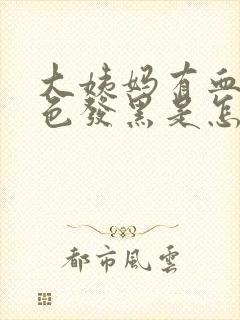 大姨妈有血
色發黑是怎
都市風雲